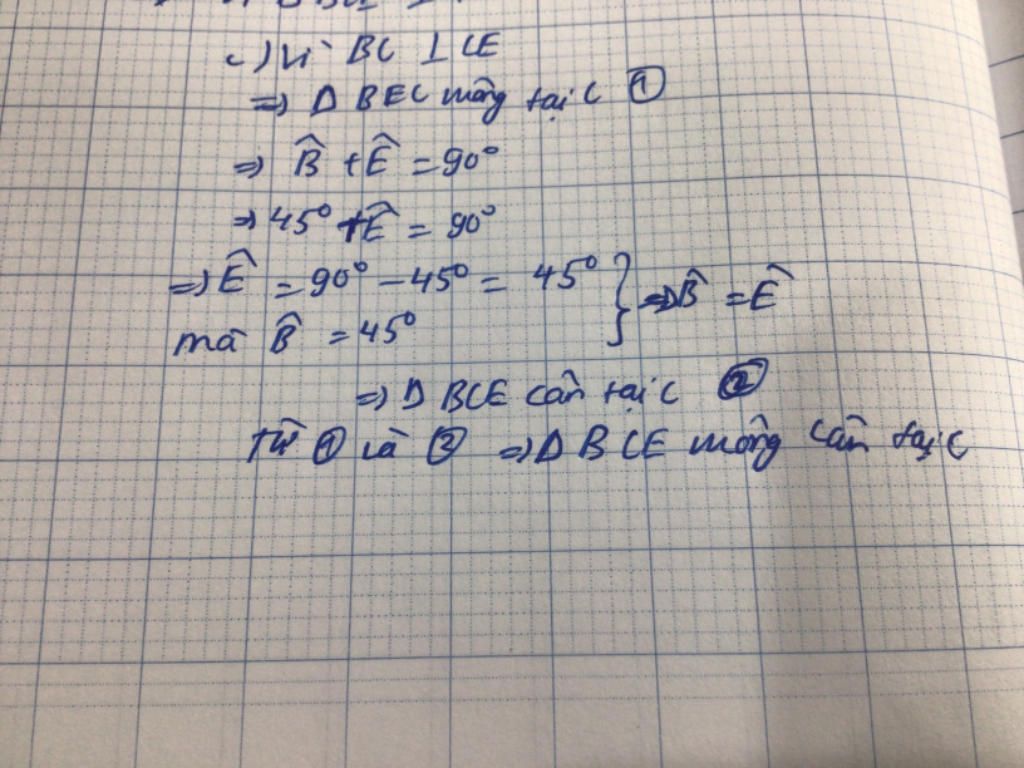 c) Vì BC ⊥ CE
=> Δ BEC vuông tại C ①
=> B̂ + Ê = 90°
=> 45° + Ê = 90°
=> Ê = 90° - 45° = 45° } => B̂ = Ê
mà B̂ = 45°
=> Δ BCE cân tại C ②
Từ ① và ② => Δ BCE vuông cân tại C